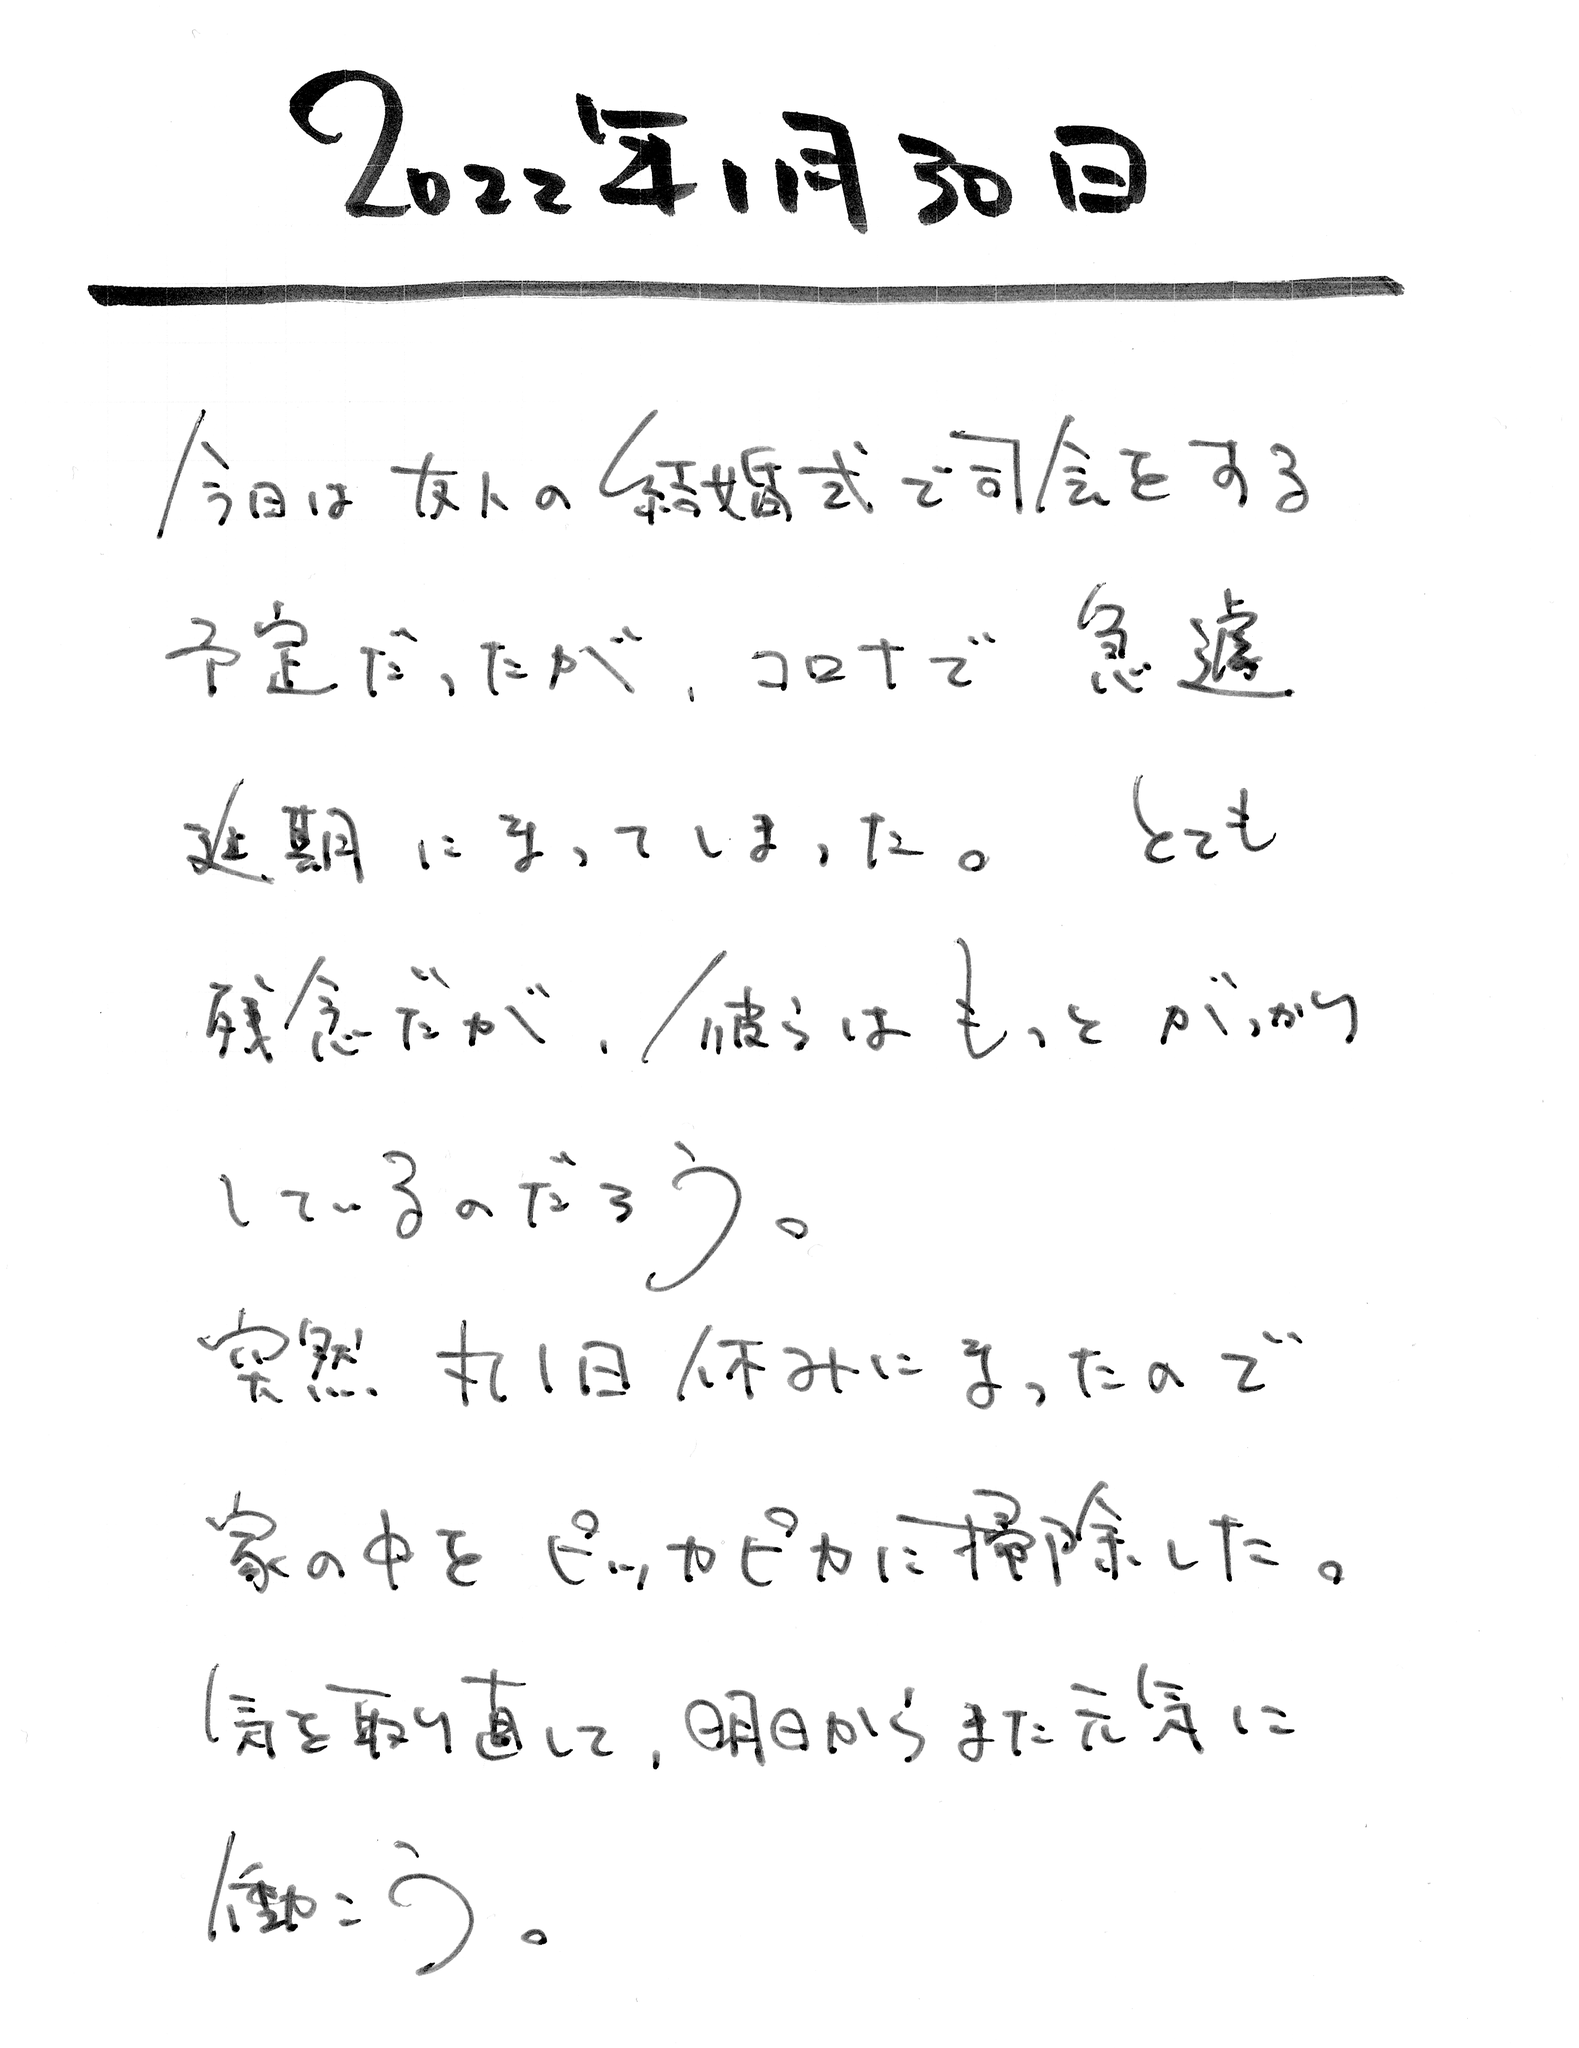 2022年11月30日
今日は友人の結婚式で司会をする
予定だったが、コロナで急遽
延期になってしまった。とても
残念だが、彼らはもっとがっかり
しているのだろう。
突然丸1日休みになったので
家の中をピッカピカに掃除した。
気を取り直して、明日からまた元気に
働こう。